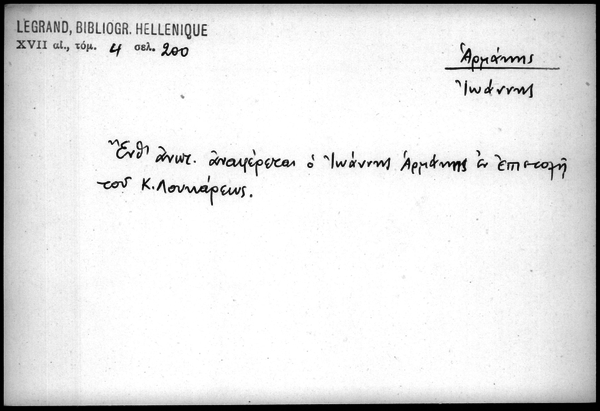 LEGRAND, BIBLIOGR. HELLENIQUE
XVII αἰ., τόμ. 4 σελ. 200
Ἁρμάνης
Ἰωάννης
Ἔνθ' ἀνωτ. ἀναφέρεται ὁ Ἰωάννης Ἁρμάνης ἐν ἐπιστολῇ
τοῦ Κ. Λουκάρεως.